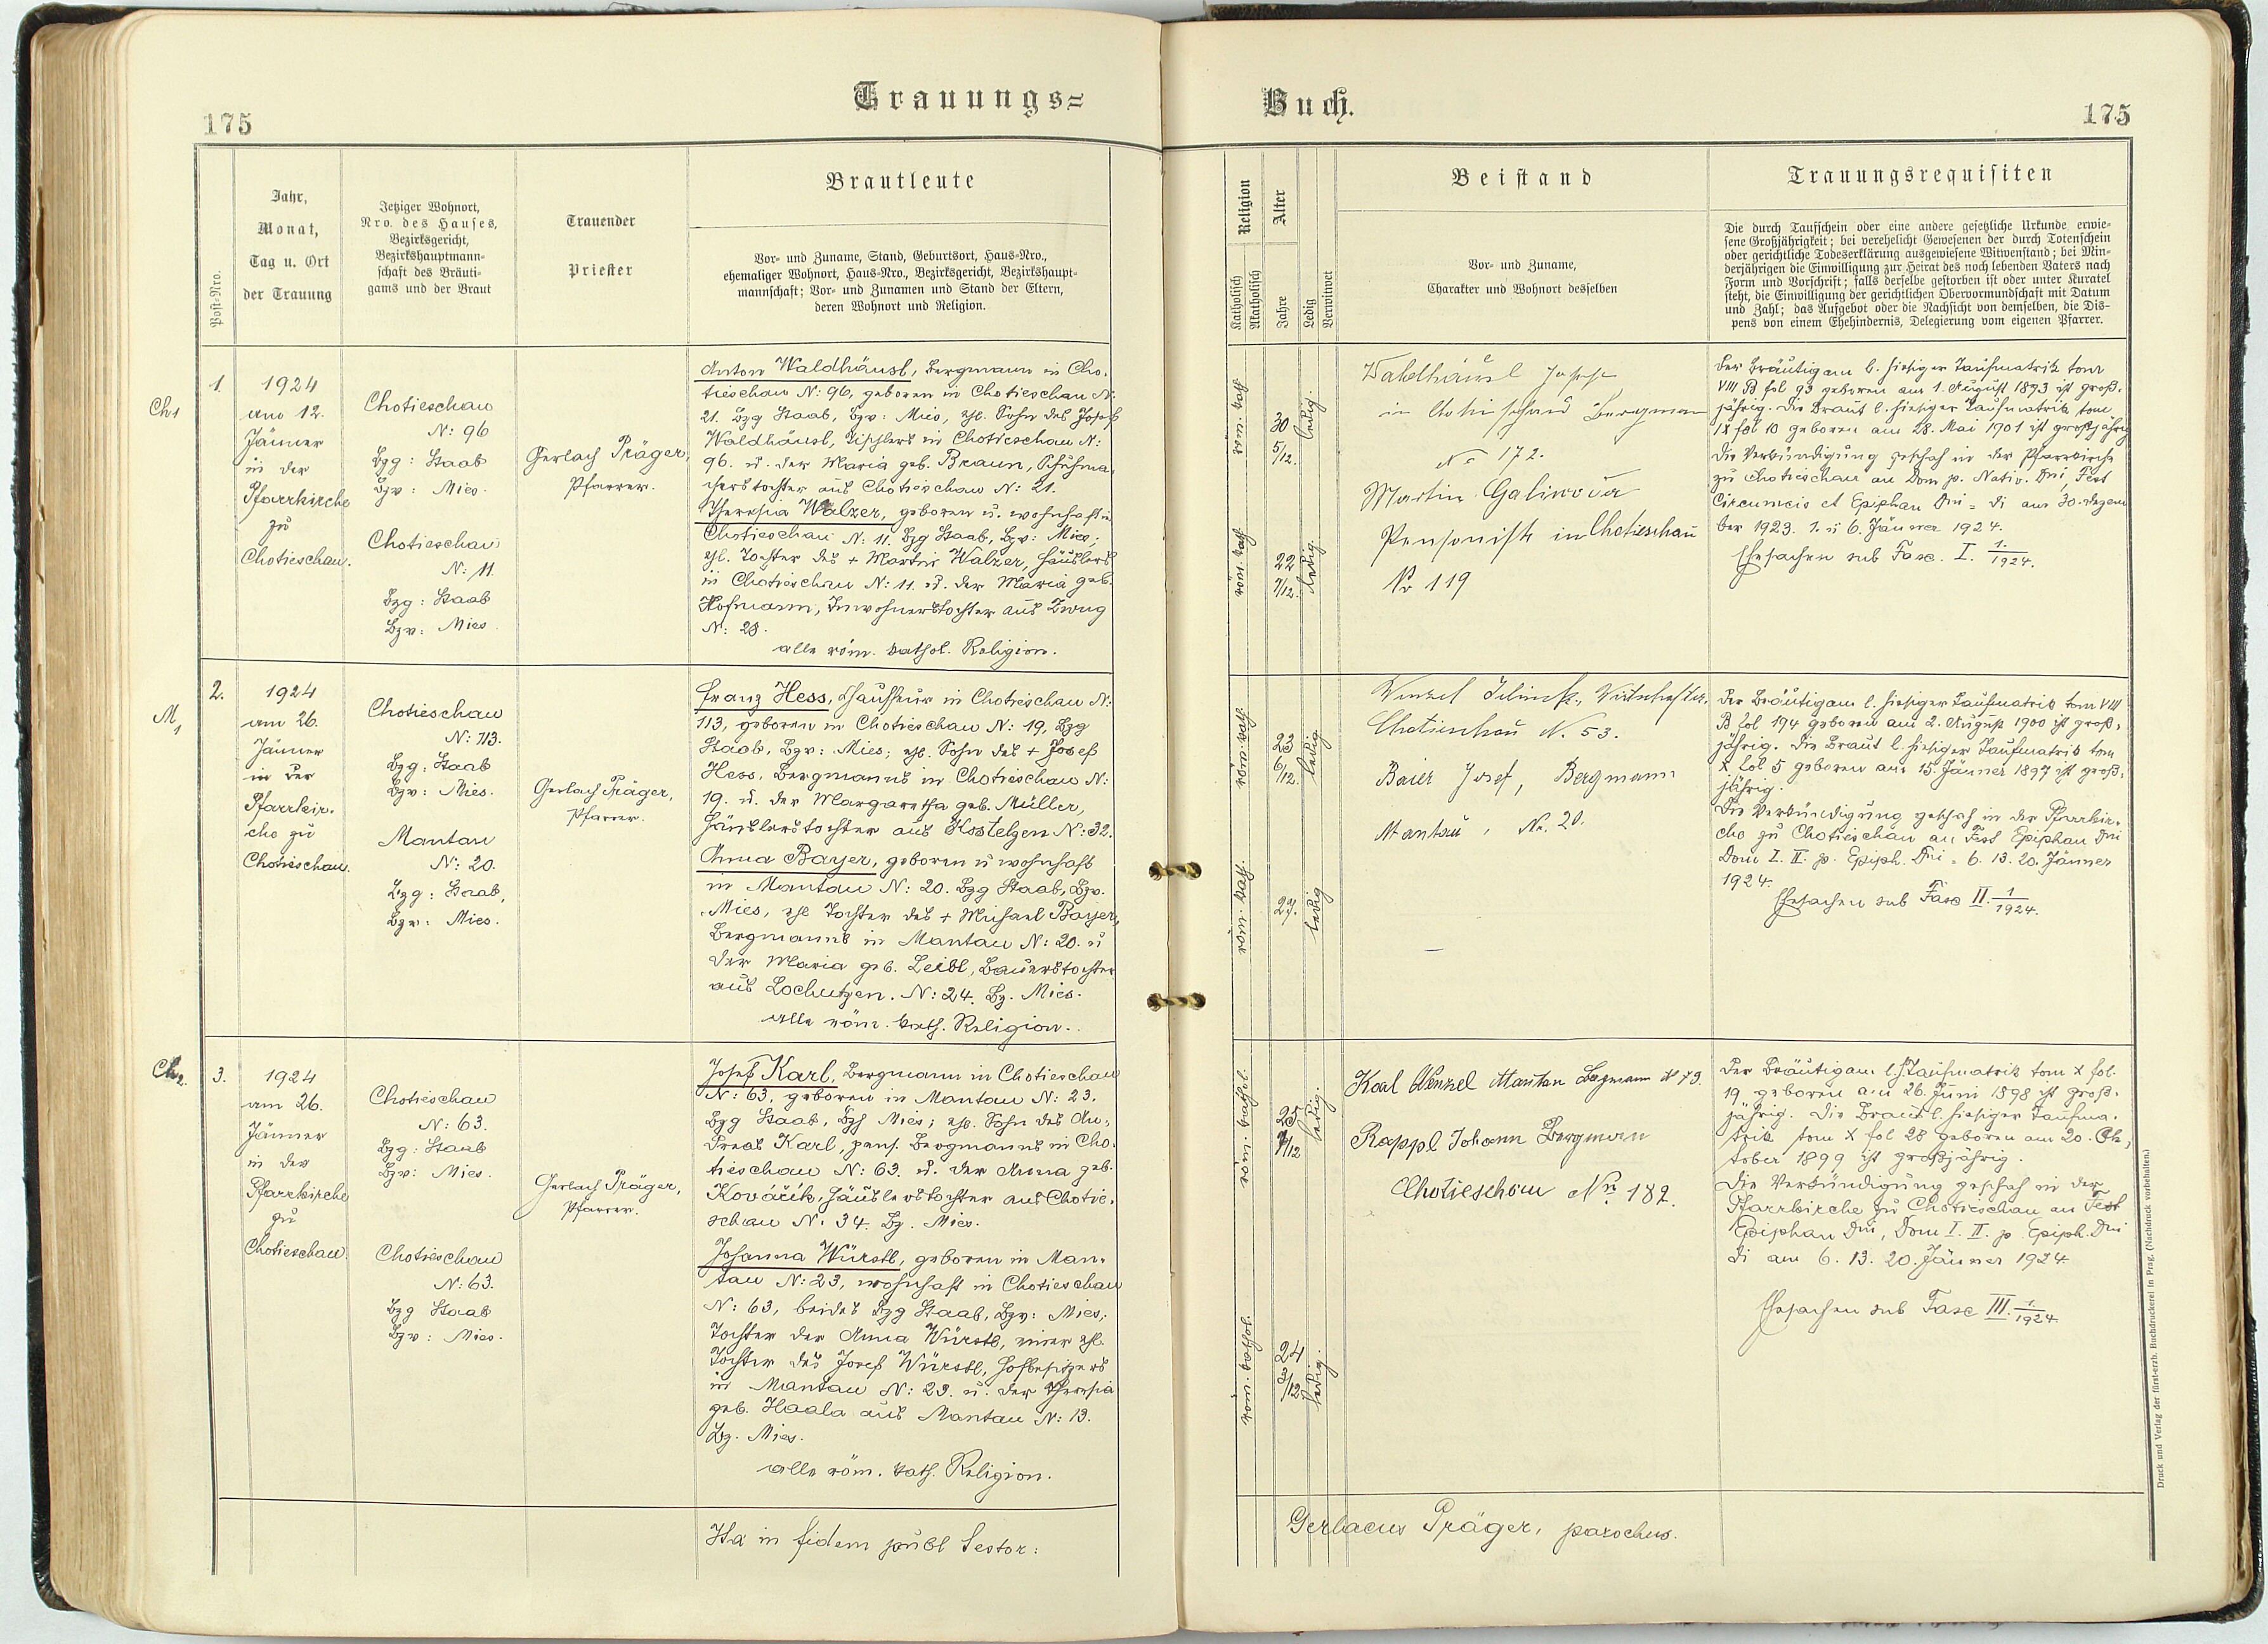 Trauungs=
Buch.
175
175
Post-Nro.
Jahr,
Monat,
Tag u. Ort
der Trauung
Jetziger Wohnort,
Nro. des Hauses,
Bezirksgericht,
Bezirkshauptmann-
schaft des Bräuti-
gams und der Braut
Trauender
Priester
Brautleute
Vor- und Zuname, Stand, Geburtsort, Haus-Nro.,
ehemaliger Wohnort, Haus-Nro., Bezirksgericht, Bezirkshaupt-
mannschaft; Vor- und Zunamen und Stand der Eltern,
deren Wohnort und Religion.
Religion
Katholisch
Akatholisch
Alter
Jahre
Ledig
Verwitwet
Beistand
Vor- und Zuname,
Charakter und Wohnort desselben
Trauungsrequisiten
Die durch Taufschein oder eine andere gesetzliche Urkunde erwie-
sene Großjährigkeit; bei verehelicht Gewesenen der durch Totenschein
oder gerichtliche Todeserklärung ausgewiesene Witwenstand; bei Min-
derjährigen die Einwilligung zur Heirat des noch lebenden Vaters nach
Form und Vorschrift; falls derselbe gestorben ist oder unter Kuratel
steht, die Einwilligung der gerichtlichen Obervormundschaft mit Datum
und Zahl; das Aufgebot oder die Nachsicht von demselben, die Dis-
pens von einem Ehehindernis, Delegierung vom eigenen Pfarrer.
Ch1
1.
1924
am 12.
Jänner
in der
Pfarrkirche
zu
Chotieschau.
Chotieschau
N: 96
Bzg: Staab
Bzv: Mies.
Chotieschau
N: 11.
Bzg: Staab
Bzv: Mies.
Gerlach Präger,
Pfarrer.
Anton Waldhäusl, Bergmann in Cho-
tieschau N: 96, geboren in Chotieschau N:
21. Bzg Staab, Bzv: Mies, ehl. Sohn des Josef
Waldhäusl, Tischlers in Chotieschau N:
96. u. der Maria geb. Braun, Schuhma-
cherstochter aus Chotieschau N: 21.
Theresia Walzer, geboren u. wohnhaft in
Chotieschau N: 11. Bzg Staab, Bzv: Mies;
ehl. Tochter des + Martin Walzer, Häuslers
in Chotieschau N: 11. u. der Maria geb.
Hofmann, Inwohnerstochter aus Zwug
N: 28.
alle röm. kathol. Religion.
röm. kath.
30
5/12.
ledig.
röm. kath.
22
7/12.
ledig.
Waldhäusl Josef
in Chotieschau Bergman
No 172.
Martin
Pensonist in Chotieschau
No 119
Der Bräutigam l. hiesiger Taufmatrik tom
VIII B fol 93 geboren am 1. August 1893 ist groß-
jährig. Die Braut l. hiesiger Taufmatrik tom
IX fol 10 geboren am 28. Mai 1901 ist großjährig
Die Verkündigung geschah in der Pfarrkirche
zu Chotieschau an Dom p. Nativ. Dni, Fest
Circumcis et Epiphan Dni = di am 30. Dezem
ber 1923. 1. u 6. Jänner 1924.
Ehesachen sub Fasc. I. 1./1924.
M1
2.
1924
am 26.
Jänner
in der
Pfarrkir-
che zu
Chotieschau.
Chotieschau
N: 113.
Bzg: Staab
Bzv: Mies.
Mantau
N: 20.
Bzg: Staab,
Bzv: Mies.
Gerlach Präger,
Pfarrer.
Franz Hess, Chauffeur in Chotieschau N:
113, geboren in Chotieschau N: 19, Bzg
Staab, Bzv: Mies; ehl. Sohn des + Josef
Hess, Bergmanns in Chotieschau N:
19. u. der Margaretha geb. Müller,
Häuslerstochter aus Kostelzen N: 32.
Anna Bayer, geboren u wohnhaft
in Mantau N: 20. Bzg Staab, Bzv.
Mies, ehl Tochter des + Michael Bayer,
Bergmanns in Mantau N: 20. u
der Maria geb. Leibl, Bauerstochter
aus Lochutzen. N: 24. Bz. Mies.
alle röm. kath. Religion.
röm. kath.
23
6/12.
ledig
röm. kath.
27.
ledig
Wenzel Jelinek, Wirtschafter,
Chotieschau N. 53.
Baier Josef, Bergmann
Mantau, No. 20.
Der Bräutigam l. hiesiger Taufmatrik tom VIII
B fol. 194 geboren am 2. August 1900 ist groß-
jährig. Die Braut l. hiesiger Taufmatrik tom
X fol 5 geboren am 15. Jänner 1897 ist groß-
jährig.
Die Verkündigung geschah in der Pfarrkir-
che zu Chotieschau an Fest Epiphan Dni
Dom I. II. p. Epiph. Dni = 6. 13. 20. Jänner
1924.
Ehesachen sub Fasc II. 1/1924.
Ch2.
3.
1924
am 26.
Jänner
in der
Pfarrkirche
zu
Chotieschau.
Chotieschau
N: 63.
Bzg: Staab
Bzv: Mies.
Chotieschau
N: 63.
Bzg Staab
Bzv: Mies.
Gerlach Präger,
Pfarrer.
Josef Karl, Bergmann in Chotieschau
N: 63, geboren in Mantau N: 23.
Bzg Staab, Bzh Mies; ehl. Sohn des An-
dreas Karl, pens. Bergmanns in Cho-
tieschau N: 63. u. der Anna geb.
Kovářík, Häuslerstochter aus Chotie-
schau N. 34. Bz. Mies.
Johanna Würstl, geboren in Man-
tau N: 23, wohnhaft in Chotieschau
N: 63, beides Bzg Staab, Bzv: Mies;
Tochter der Anna Würstl, einer ehl.
Tochter des Josef Würstl, Hofbesitzers
in Mantau N: 23. u. der Theresia
geb. Haala aus Mantau N: 13.
Bz. Mies.
alle röm. kath. Religion.
röm. kathol.
25
7/12
ledig.
röm. kathol.
24
3/12
ledig.
Karl Wenzel Mantau Bergmann N 73.
Rappl Johann Bergmann
Chotieschau Nr. 182.
Der Bräutigam l. Taufmatrik tom X fol.
19 geboren am 26. Juni 1898 ist groß-
jährig. Die Braut l. hiesiger Taufma-
trik tom X fol 28 geboren am 20. Ok-
tober 1899 ist großjährig.
Die Verkündigung geschah in der
Pfarrkirche zu Chotieschau an Fest
Epiphan Dni, Dom I. II. p Epiph. Dni
di am 6. 13. 20. Jänner 1924.
Ehesachen sub Fasc III. 1/1924.
Ita in fidem publ testor:
Gerlacus Präger, parochus.
Druck und Verlag der fürst-erzb. Buchdruckerei in Prag. (Nachdruck vorbehalten.)